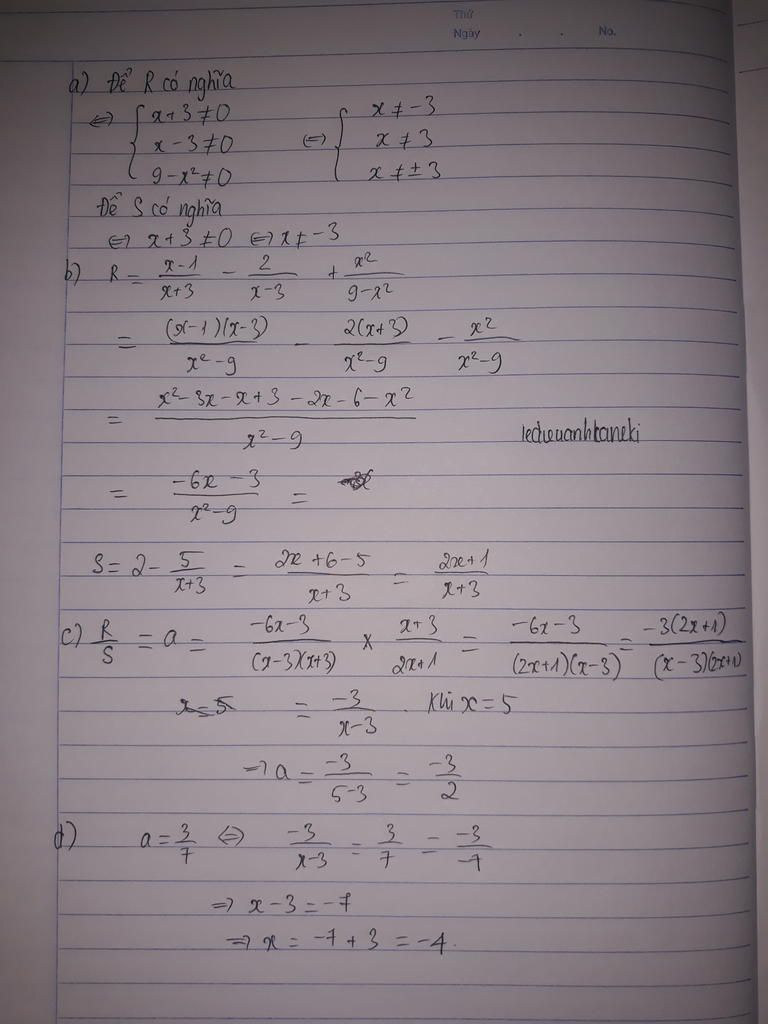 Thứ
Ngày . . No.
a) Để R có nghĩa
⇔ { x+3 ≠ 0 ⇔ { x ≠ -3
x-3 ≠ 0 x ≠ 3
9-x² ≠ 0 x ≠ ± 3
Để S có nghĩa
⇔ x+3 ≠ 0 ⇔ x ≠ -3
b) R = (x-1)/(x+3) - 2/(x-3) + x²/(9-x²)
= (x-1)(x-3)/(x²-9) - 2(x+3)/(x²-9) - x²/(x²-9)
= (x²-3x-x+3-2x-6-x²)/(x²-9)
ledieuanhkaneki
= (-6x-3)/(x²-9) =
S = 2 - 5/(x+3) = (2x+6-5)/(x+3) = (2x+1)/(x+3)
c) R/S = a = (-6x-3)/((x-3)(x+3)) × (x+3)/(2x+1) = (-6x-3)/((2x+1)(x-3)) = -3(2x+1)/((x-3)(2x+1))
x=5 = -3/(x-3) . Khi x = 5
⇒ a = -3/(5-3) = -3/2
d) a = 3/7 ⇔ -3/(x-3) = 3/7 = -3/-7
⇒ x-3 = -7
⇒ x = -7+3 = -4.